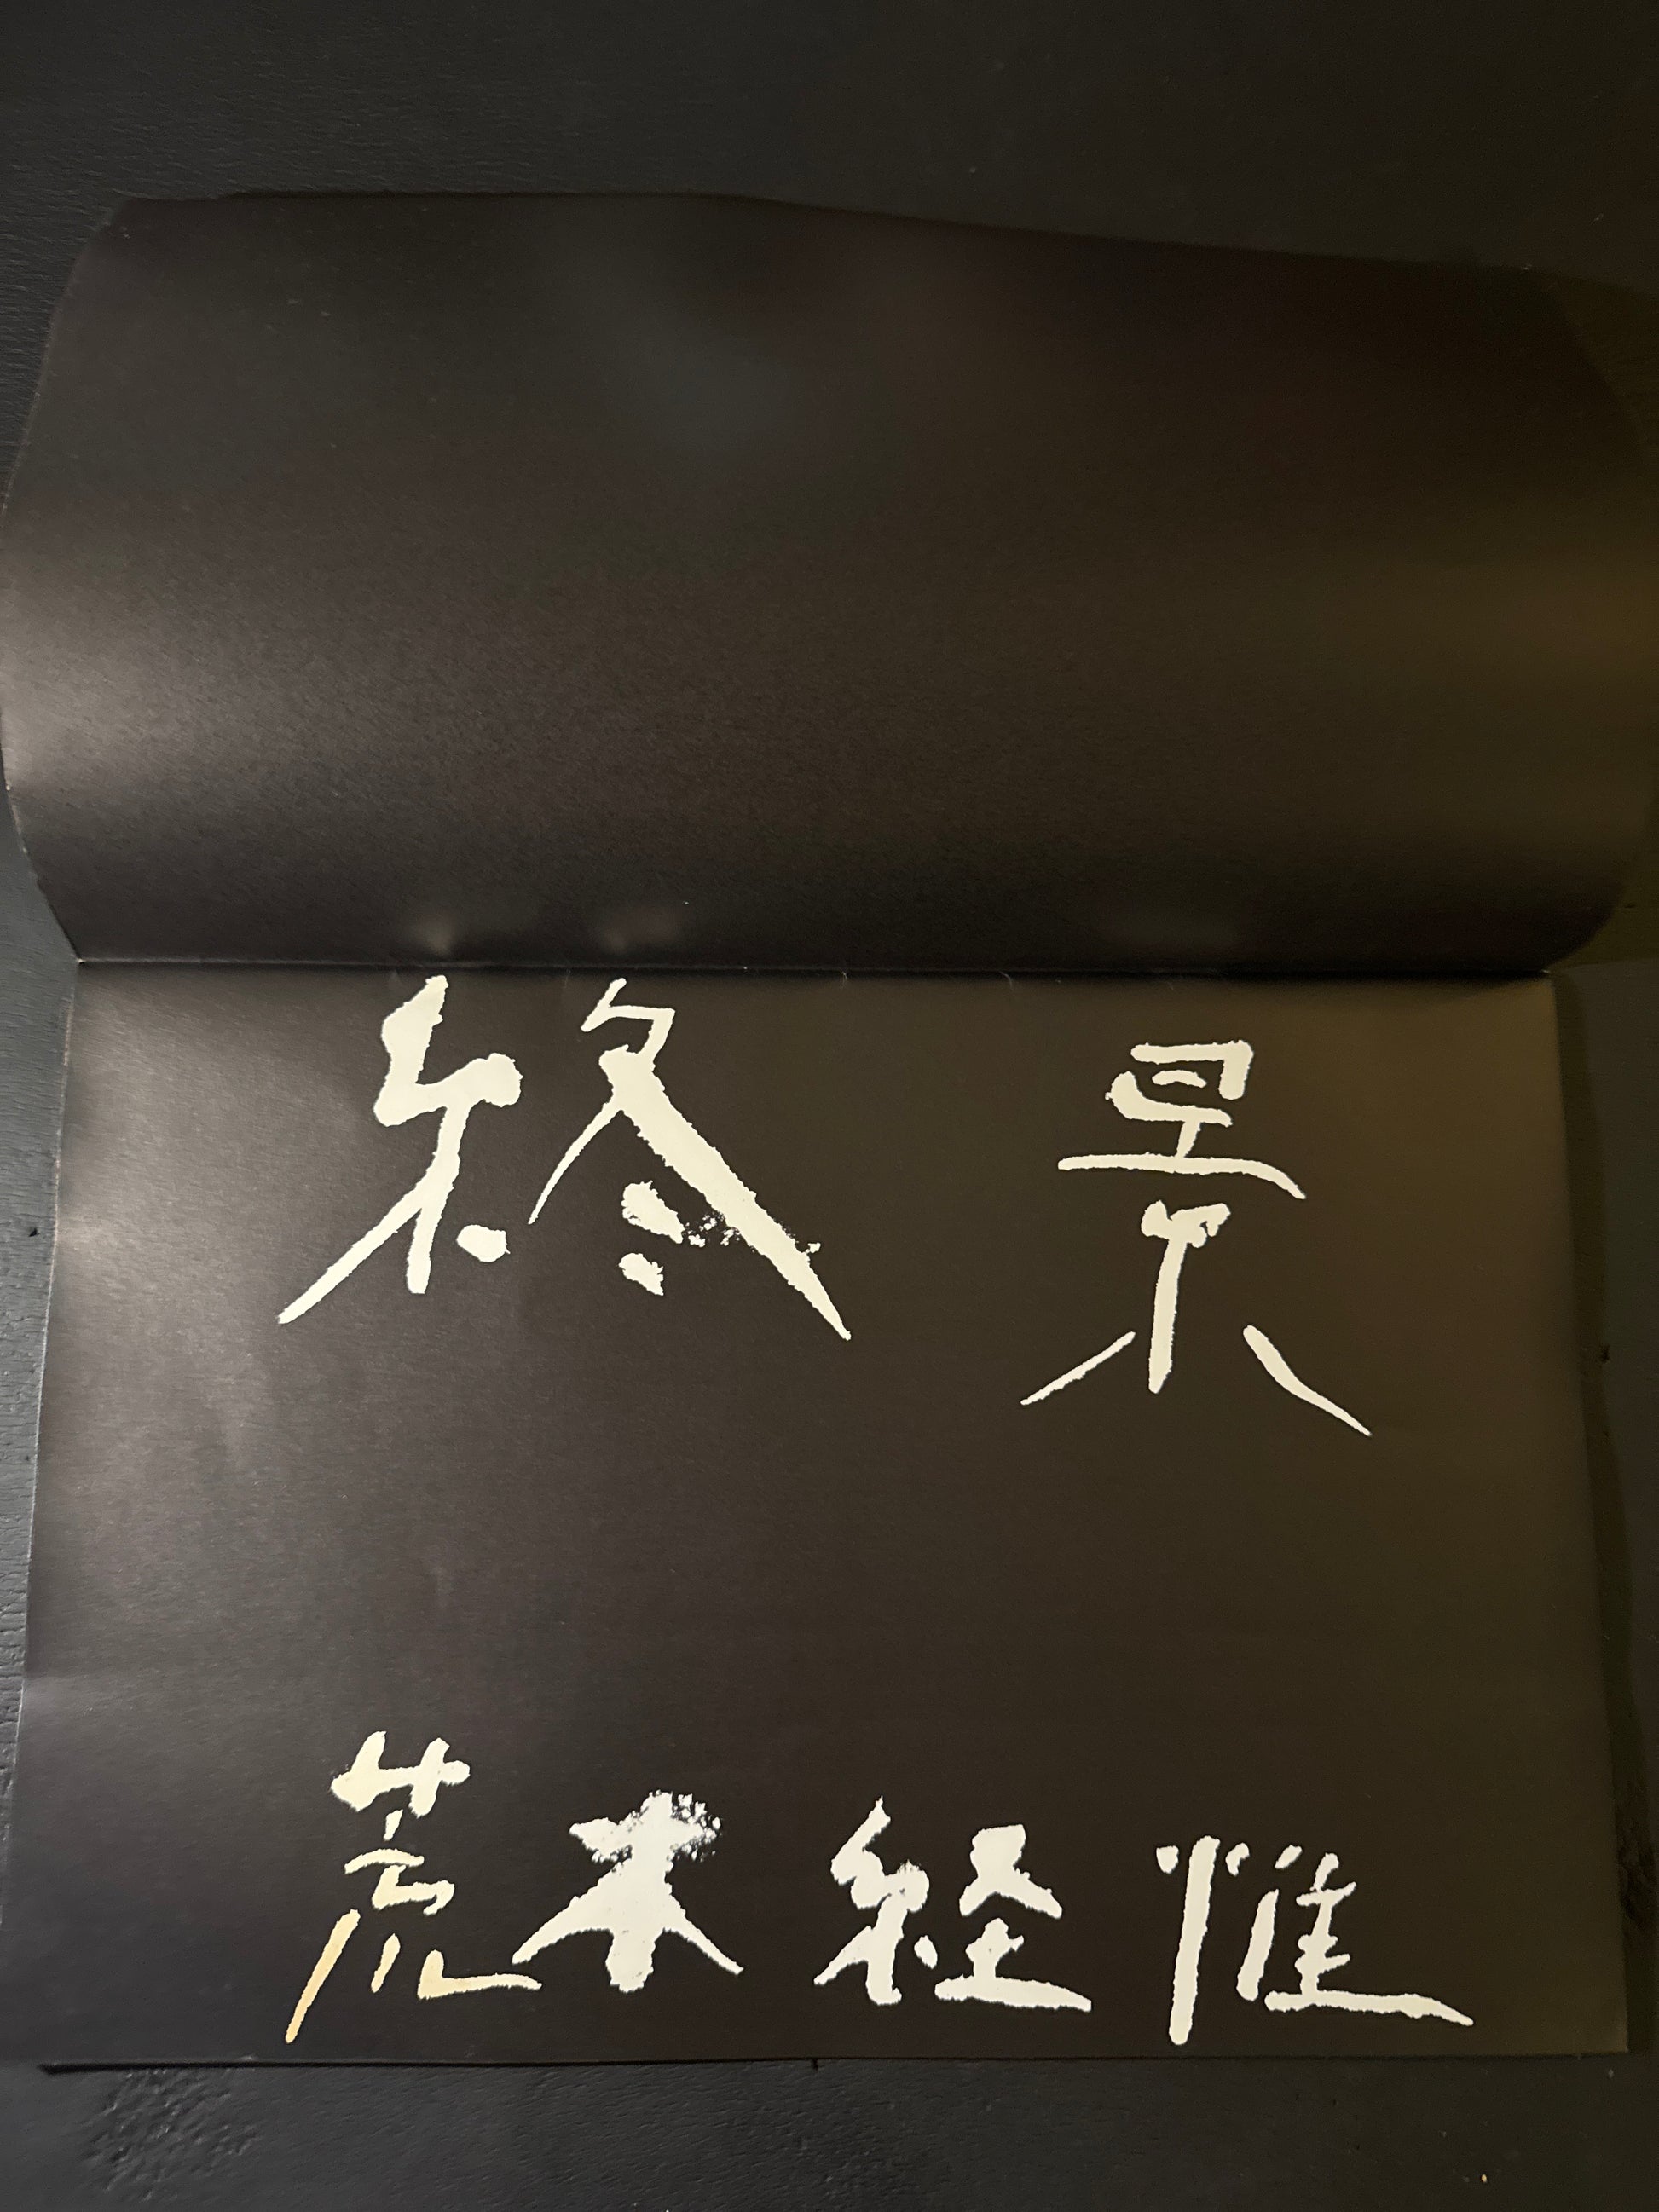 終景
荒木経惟